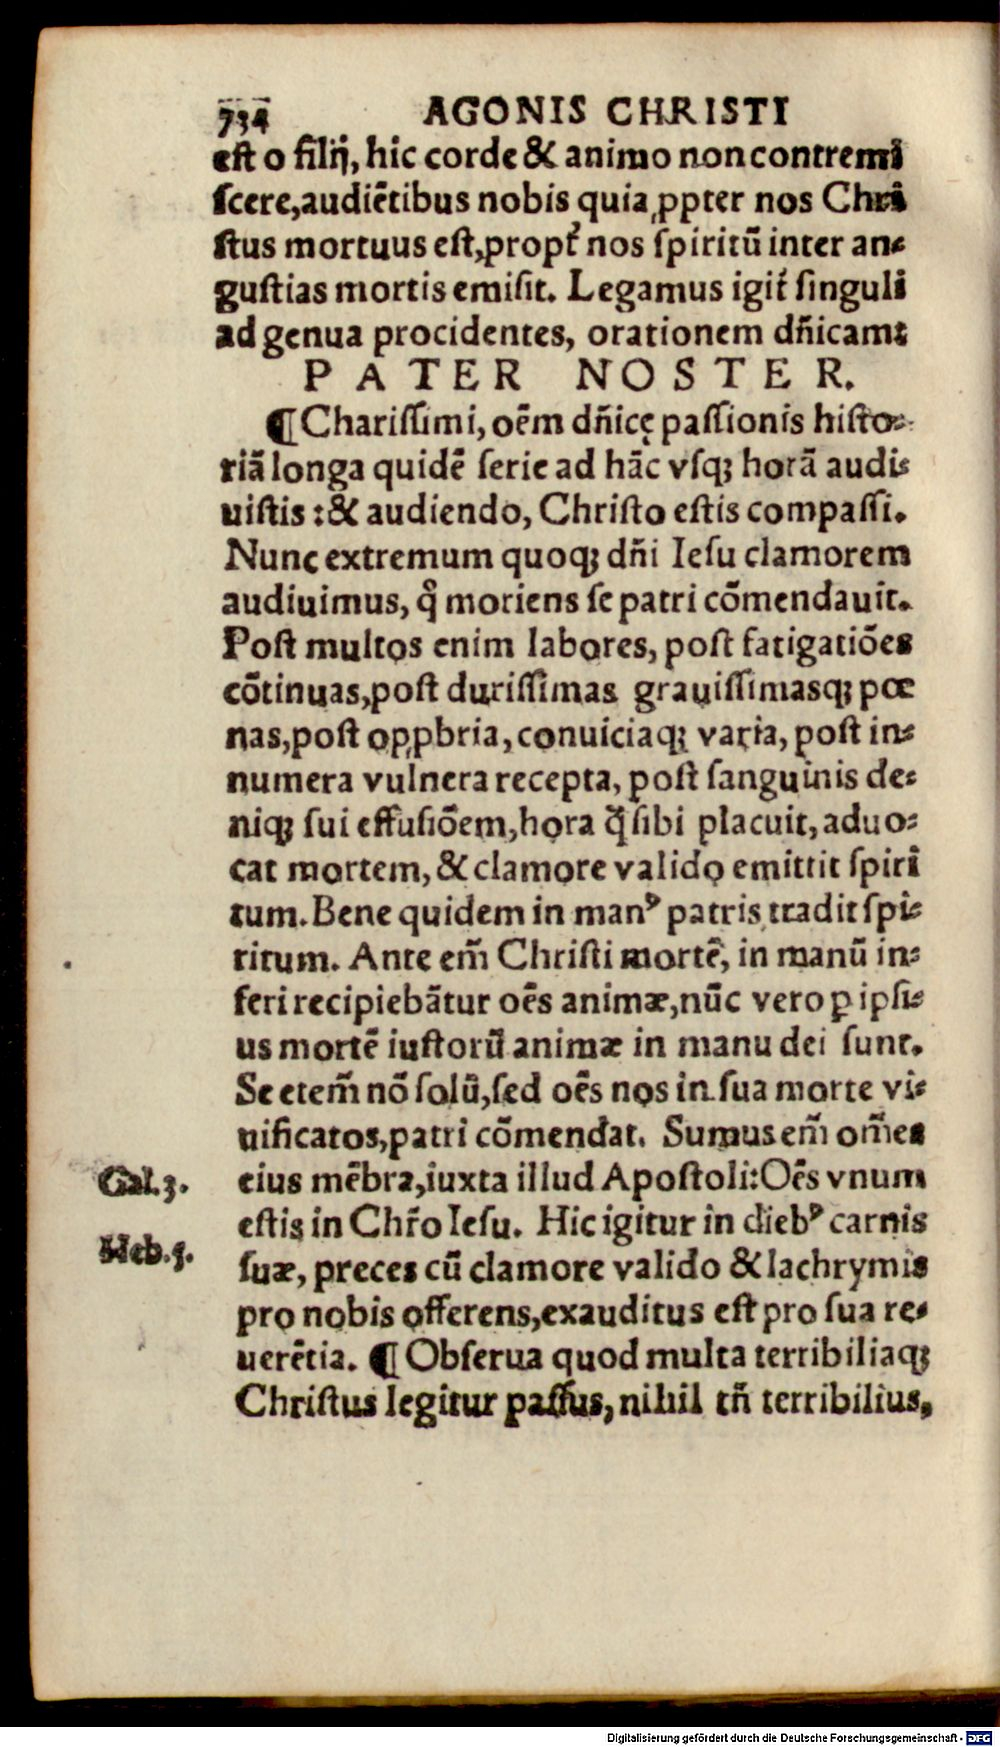 734 AGONIS CHRISTI
est o filij, hic corde & animo non contremi
scere, audiētibus nobis quia ꝓpter nos Chri
stus mortuus est, propt́ nos spiritū inter an-
gustias mortis emisit. Legamus igit́ singuli
ad genua procidentes, orationem dñicam:
PATER NOSTER.
¶ Charissimi, oēm dñicę passionis histo-
riā longa quidē serie ad hāc vsq; horā audi-
uistis: & audiendo, Christo estis compassi.
Nunc extremum quoq; dñi Iesu clamorem
audiuimus, q̊ moriens se patri cōmendauit.
Post multos enim labores, post fatigatiōes
cōtinuas, post durissimas grauissimasq; pœ
nas, post opꝓbria, conuiciaq; varia, post in-
numera vulnera recepta, post sanguinis de-
niq; sui effusiōem, hora q̄ sibi placuit, aduo-
cat mortem, & clamore valido emittit spiri
tum. Bene quidem in manꝰ patris tradit spi-
ritum. Ante em̄ Christi mortē, in manū in-
feri recipiebātur oēs animæ, nūc vero ꝑ ipsi-
us mortē iustorū animæ in manu dei sunt.
Se etem̄ nō solū, sed oēs nos in sua morte vi-
uificatos, patri cōmendat. Sumus em̄ om̄es
Gal. 3. eius mēbra, iuxta illud Apostoli: Oēs vnum
estis in Chr̄o Iesu. Hic igitur in diebꝰ carnis
Heb. 5. suæ, preces cū clamore valido & lachrymis
pro nobis offerens, exauditus est pro sua re-
uerētia. ¶ Obserua quod multa terribiliaq;
Christus legitur passus, nihil tñ terribilius,
Digitalisierung gefördert durch die Deutsche Forschungsgemeinschaft - DFG